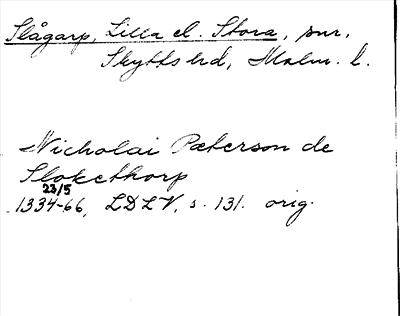 Slågarp, Lilla el. Stora, snr.
Skytts hd, Malm. l.
Nicholai Pæterson de
Slokethorp
23/5
1334-66, LDLV, s. 131. orig.